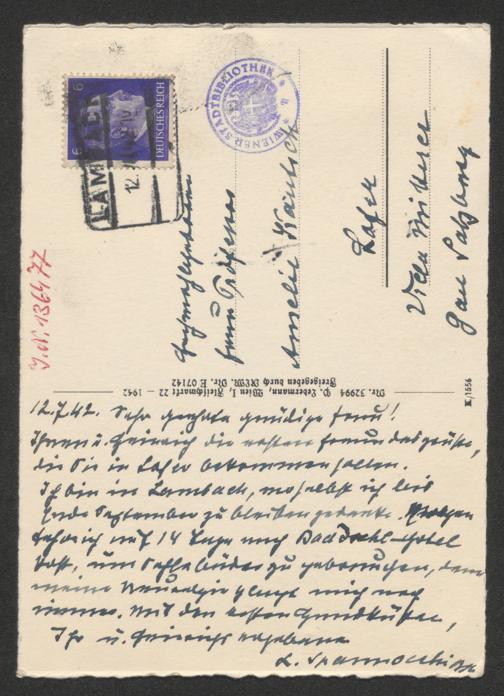 6 6
DEUTSCHES REICH
LAMBACH
12.
WIENER STADTBIBLIOTHEK
J.N. 136477
Hochwohlgeboren
Frau Professor
Amelie
Lofer
Villa
Gau Salzburg
Nr. 32994 P. Ledermann, Wien I, Fleischmarkt 22 — 1942
Freigegeben durch RLM. Nr. E 07142
K/1556
12.7.42. Sehr geehrte gnädige Frau!
Ihnen u. Heinrich die ersten Freundesgrüße,
die Sie in Lofer bekommen sollen.
Ich bin in Lambach, woselbst ich bis
Ende September zu bleiben gedenke. Morgen
fahre ich auf 14 Tage nach Bad Ischl-Hotel
Post, um Solebäder zu gebrauchen, denn
meine Neuralgie plagt mich noch
immer. Mit den besten Handküssen,
Ihr u. Heinrichs ergebene
L. Spannocchi